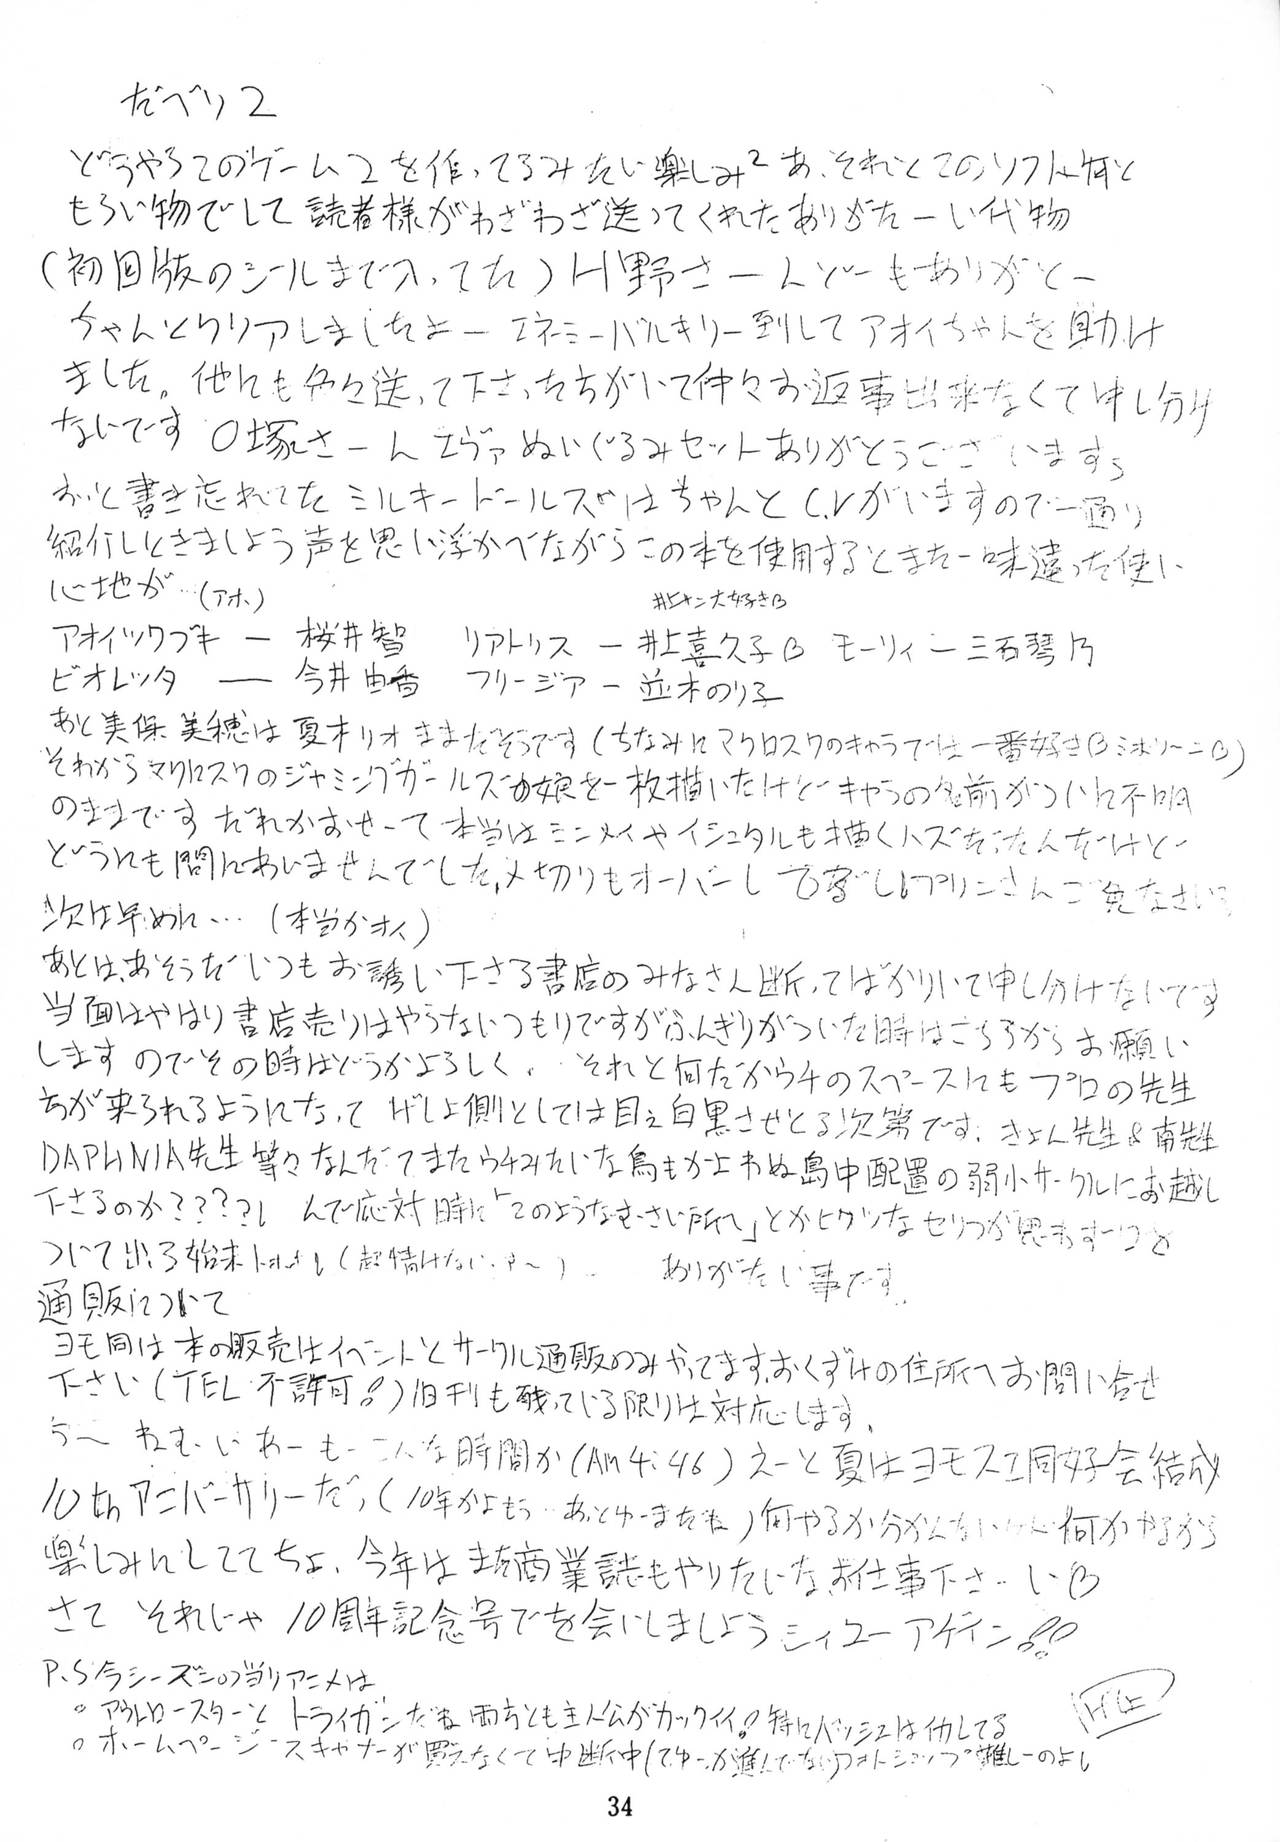 だべり2
どうやらこのゲーム2を作ってるみたい楽しみ² あ、それとこのソフト何と
もらい物でして読者様がわざわざ送ってくれたありがたーい代物
(初回版のシールまで入ってた) H野さーんどーもありがとー
ちゃんとクリアしましたよー エネミーバルキリー倒してアオイちゃんを助け
ました。他にも色々送って下さったちがいて仲々お返事出来なくて申し分け
ないです O塚さーん エヴァぬいぐるみセットありがとうございますぅ
おっと書き忘れてた ミルキードールズはちゃんとC.Vがいますので一通り
紹介しときましょう声を思い浮かべながらこの本を使用するとまた一味違った使い
心地が…(アホ)
井上ヒャン大好き♡
アオイツワブキ ー 桜井智 リアトリス ー 井上喜久子♡ モーリィー三石琴乃
ビオレッタ ー 今井由香 フリージア ー 並木のり子
あと美保美穂は夏木リオままだそうです(ちなみにマクロス7のキャラでは一番好き♡ミホリーニ♡)
それからマクロス7のジャミングガールズの娘を一枚描いたけどキャラの名前がついに不明
のままです だれかおせーて 本当はミンメイやイシュタルも描くハズだったんだけど
どうにも間にあいませんでした,〆切りもオーバーし プリンさんご免なさい
次は早めに… (本当かオイ)
あとは、あそうだいつもお誘い下さる書店のみなさん断ってばかりいて申し分けないです
当面はやはり書店売りはやらないつもりですがふんぎりがついた時はこちらからお願い
しますのでその時はどうかよろしく. それと何だかウチのスペースにもプロの先生
ちが来られるようになって げしょ側としては目を白黒させとる次第です. きょん先生&南先生
DAPHNIA先生等々なんだってまたウチみたいな鳥もかよわぬ島中配置の弱小サークルにお越し
下さるのか???? んで応対時に「このようなむさい所へ」とかヒクツなセリフが思わずー
ついて出る始末 (超情けない ) ありがたい事です.
通販について
ヨモ同は本の販売はイベントとサークル通販のみやってます.おくずけの住所へお問い合せ
下さい (TEL 不許可!) 旧刊も残っている限りは対応します.
うー ねむーい わーもーこんな時間か (Am 4:46) えーと夏はヨモスエ同好会結成
10thアニバーサリーだっ (10年かよもう…あっとゆーまだね) 何やるか分かんない 何かやるから
楽しみにしててちょ. 今年はまた商業誌もやりたいな,お仕事下さーい♡
さて それじゃ 10周年記念号でを会いしましょう シィユーアゲイン!!
P.S 今シーズンの当りアニメは
○ アウトロースターと トライガンだね 両方とも主人公がカックイイ! 特にバッシュはイカしてる
○ ホームページ スキャナーが買えなくて中断中(てゆーか進んでない)フォトショップ難しーのよし
34